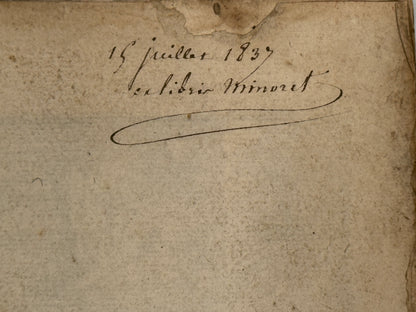 15 juillet 1837
ex libris Minoret